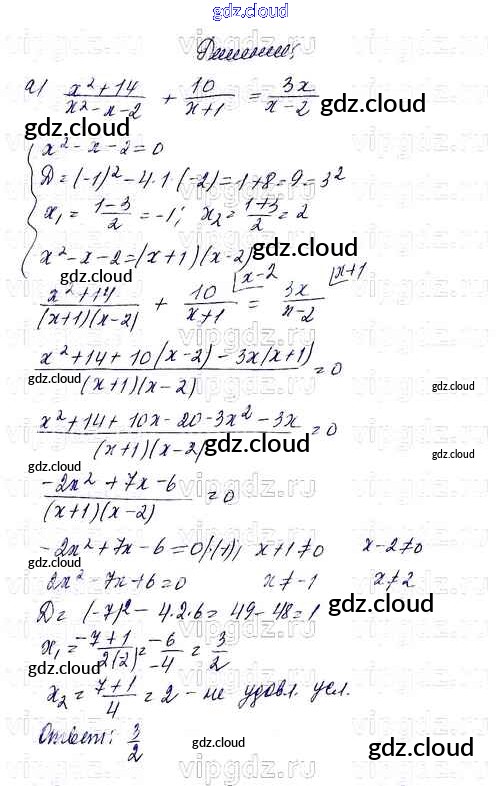 gdz.cloud
Решение:
а) (x²+14)/(x²-x-2) + 10/(x+1) = 3x/(x-2)
gdz.cloud
gdz.cloud
x²-x-2=0
D=(-1)²-4·1·(-2)=1+8=9=3²
gdz.cloud
x₁=(1-3)/2=-1; x₂=(1+3)/2=2
x²-x-2=(x+1)(x-2)
gdz.cloud
gdz.cloud
(x²+14)/((x+1)(x-2)) + 10/(x+1) |x-2 = 3x/(x-2) |x+1
(x²+14+10(x-2)-3x(x+1))/((x+1)(x-2))=0
gdz.cloud
gdz.cloud
(x²+14+10x-20-3x²-3x)/((x+1)(x-2))=0
gdz.cloud
gdz.cloud
(-2x²+7x-6)/((x+1)(x-2))=0
-2x²+7x-6=0|·(-1); x+1≠0 x-2≠0
gdz.cloud
2x²-7x+6=0 x≠-1 x≠2
D=(-7)²-4·2·6=49-48=1
gdz.cloud
x₁=(-7+1)/(2(-2))=-6/-4=3/2
gdz.cloud
x₂=(7+1)/4=2 - не удовл. усл.
Ответ: 3/2
gdz.cloud
gdz.cloud
vipgdz.ru